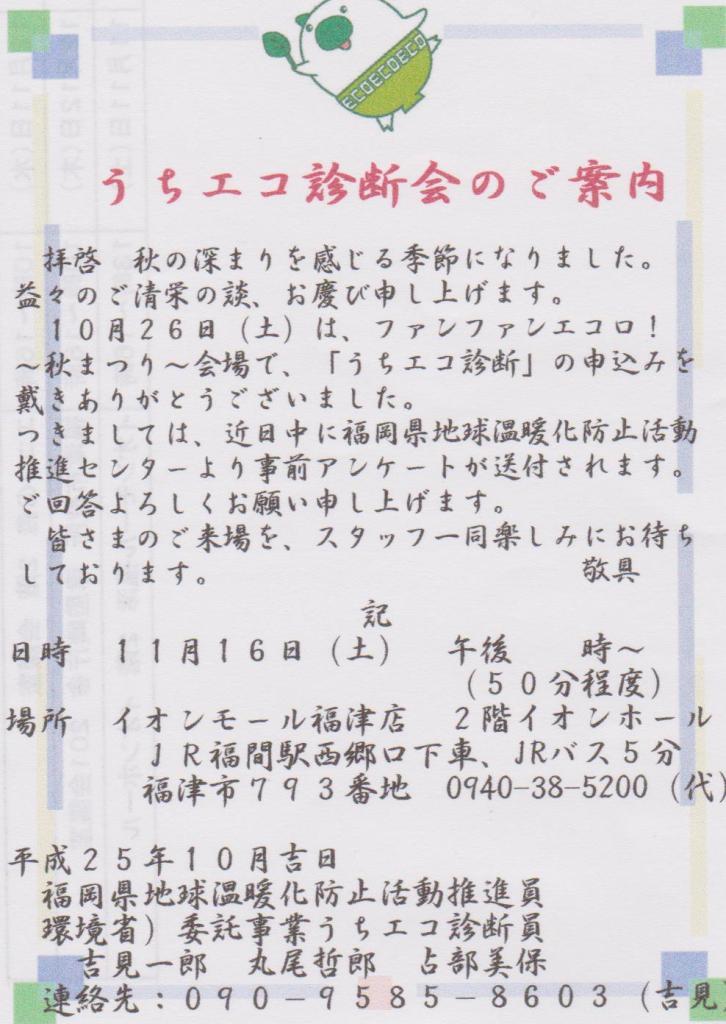 ECOECOECO
うちエコ診断会のご案内
拝啓　秋の深まりを感じる季節になりました。
益々のご清栄の談、お慶び申し上げます。
１０月２６日（土）は、ファンファンエコロ！
～秋まつり～会場で、「うちエコ診断」の申込みを
戴きありがとうございました。
つきましては、近日中に福岡県地球温暖化防止活動
推進センターより事前アンケートが送付されます。
ご回答よろしくお願い申し上げます。
皆さまのご来場を、スタッフ一同楽しみにお待ち
しております。　敬具
記
日時　１１月１６日（土）　午後　　時～
（５０分程度）
場所　イオンモール福津店　２階イオンホール
ＪＲ福間駅西郷口下車、JRバス５分
福津市７９３番地　0940-38-5200（代）
平成２５年１０月吉日
福岡県地球温暖化防止活動推進員
環境省）委託事業うちエコ診断員
吉見一郎　丸尾哲郎　占部美保
連絡先：０９０－９５８５－８６０３（吉見）